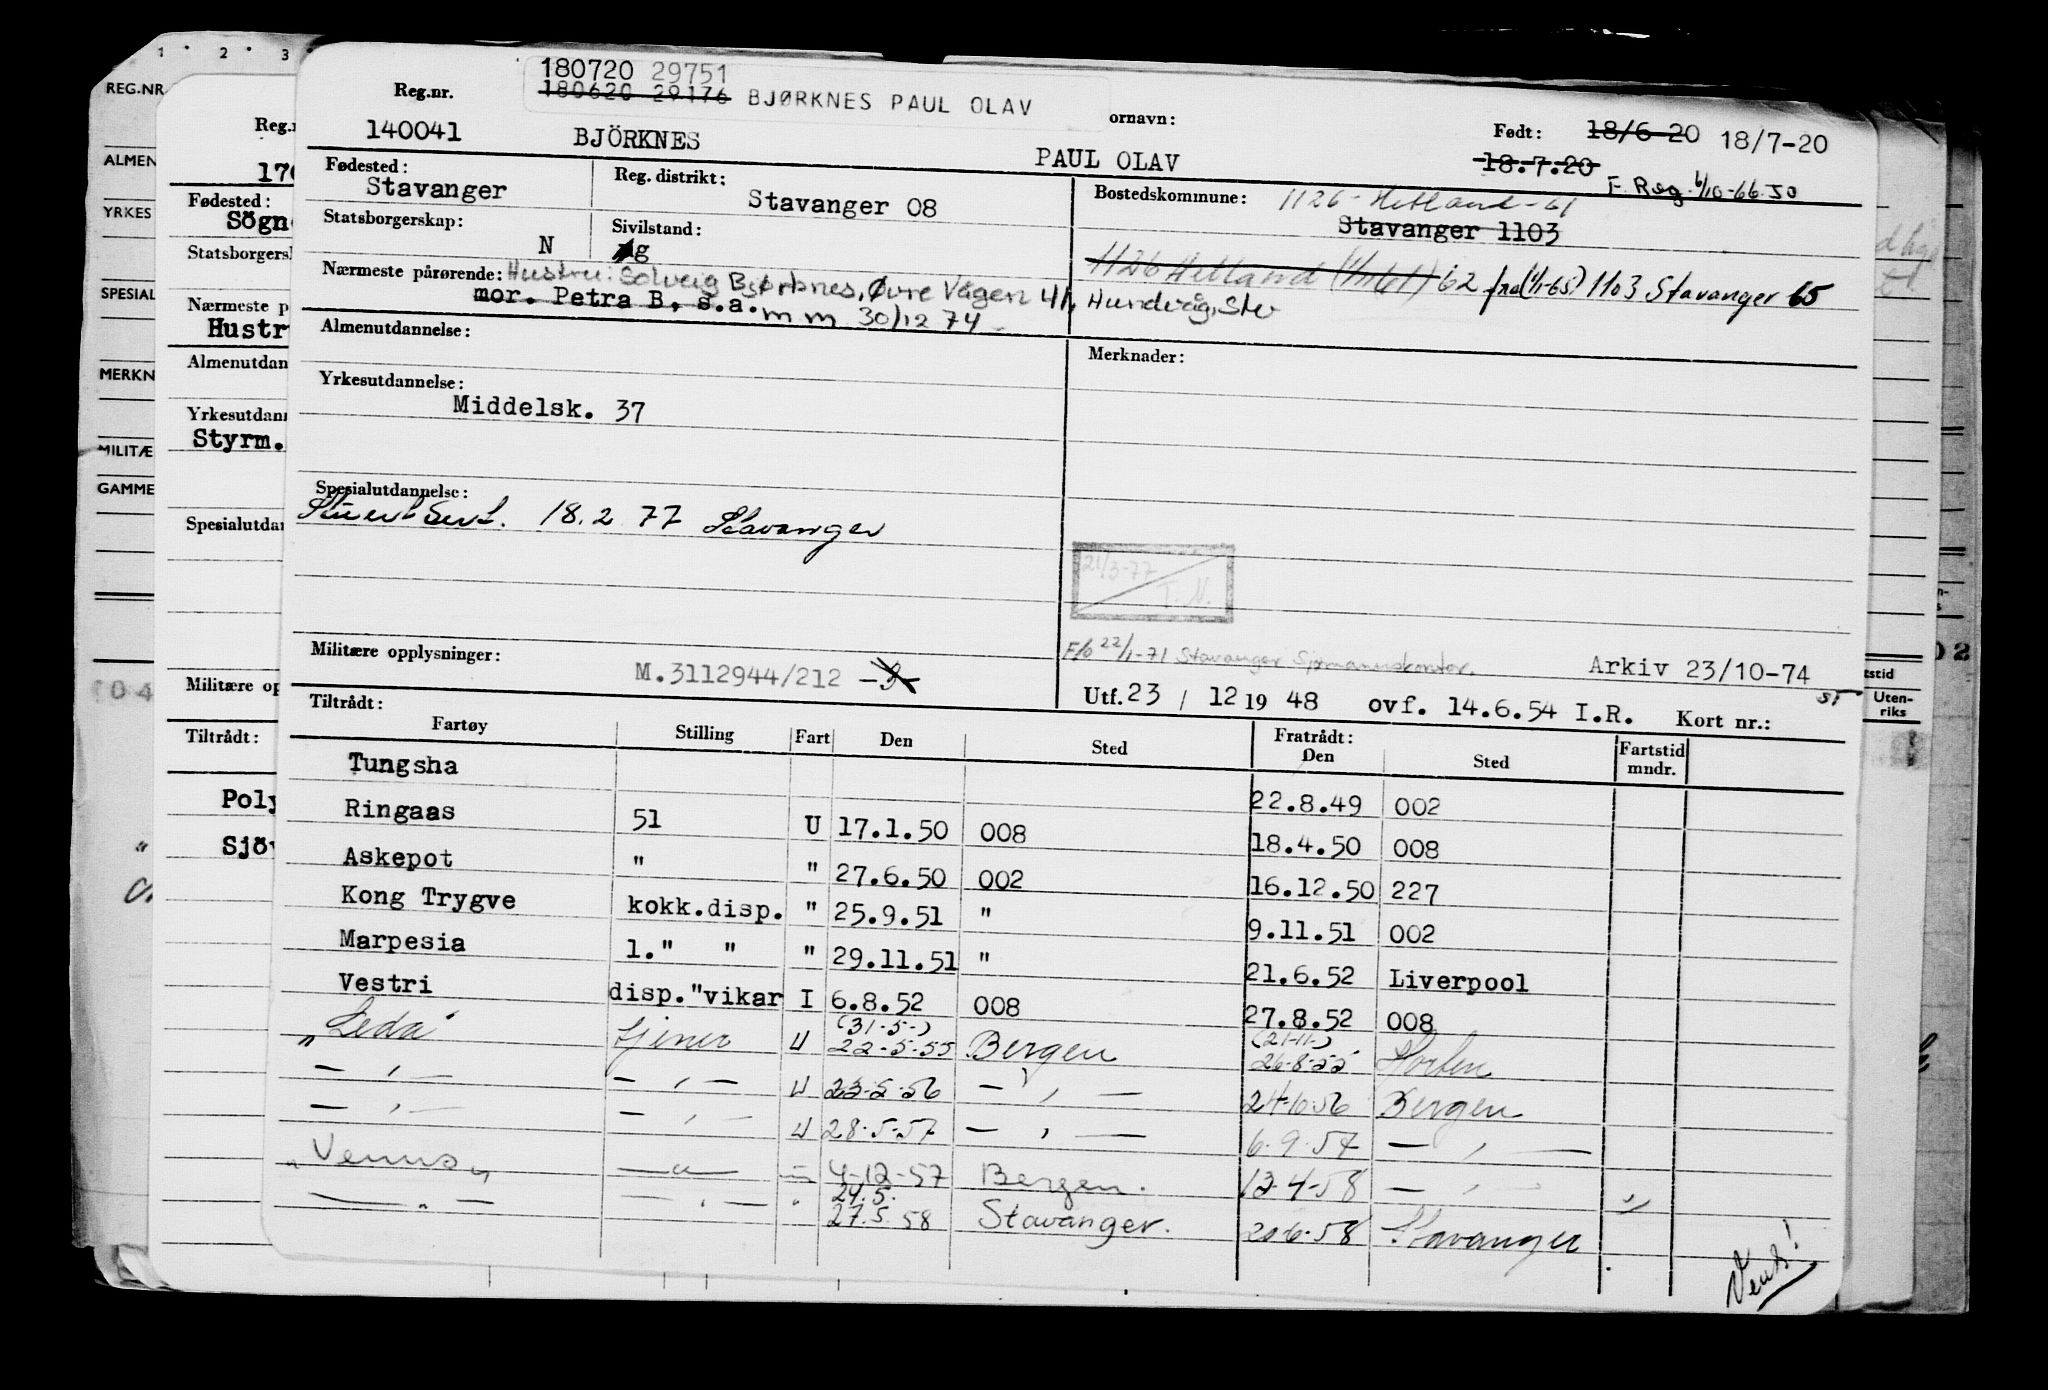 1 · 2 · 3
REG.NR
ALMEN
YRKES
SPESIAL
MERKN
MILITÆ
GAMME
Reg.n
170
Fødested:
Sögn
Statsborgersk
Nærmeste p
Hustr
Almenutdan
Yrkesutdann
Styrm.
Spesialutdan
Militære op
Tiltrådt:
Poly
Sjö
180720 29751
Reg.nr. 180620 29176 BJØRKNES PAUL OLAV ornavn: Født: 18/6-20 18/7-20
140041 BJÖRKNES PAUL OLAV 18.7.20
F. Reg. 6/10-66.50
Fødested: Reg. distrikt: Bostedskommune: 1126-Hetland-61
Stavanger Stavanger 08 Stavanger 1103
Statsborgerskap: Sivilstand:
N g 1126 Hetland (1/1-61) 62 fra(1/1-65) 1103 Stavanger 65
Nærmeste pårørende: Hustru: Solveig Bjørknes, Øvre Vågen 41, Hundvåg, Stv
mor. Petra B, s.a. m m 30/12 74
Almenutdannelse: Merknader:
Yrkesutdannelse:
Middelsk. 37
Spesialutdannelse:
Stuert Sert. 18.2 77 Stavanger
21/3-77
T. N.
Militære opplysninger: F/o 22/1-71 Stavanger Sjømannskontor.
M.3112944/212 Arkiv 23/10-74
Utf. 23 / 12 19 48 ovf. 14.6.54 I.R. Kort nr.:
Tiltrådt: Fratrådt:
Fartøy Stilling Fart Den Sted Den Sted Fartstid mndr.
Tungsha 22.8.49 002
Ringaas 51 U 17.1.50 008 18.4.50 008
Askepot " " 27.6.50 002 16.12.50 227
Kong Trygve kokk.disp. " 25.9.51 " 9.11.51 002
Marpesia 1." " " 29.11.51 " 21.6.52 Liverpool
Vestri disp."vikar I 6.8.52 008 27.8.52 008
(31-5-) (21-11-)
"Leda" tjener U 22-5-55 Bergen 26-8-55 Horten
— " — — " — U 23-5-56 — " — 24-10-56 Bergen
— " — — " — U 28-5-57 — " — 6-9-57 — " —
"Venus" — " — 4-12-57 Bergen. 13-4-58 — " —
24.5.
— " — — " — " 27.5.58 Stavanger. 20-6-58 Stavanger
Vend!
02
tstid
Uten-
riks